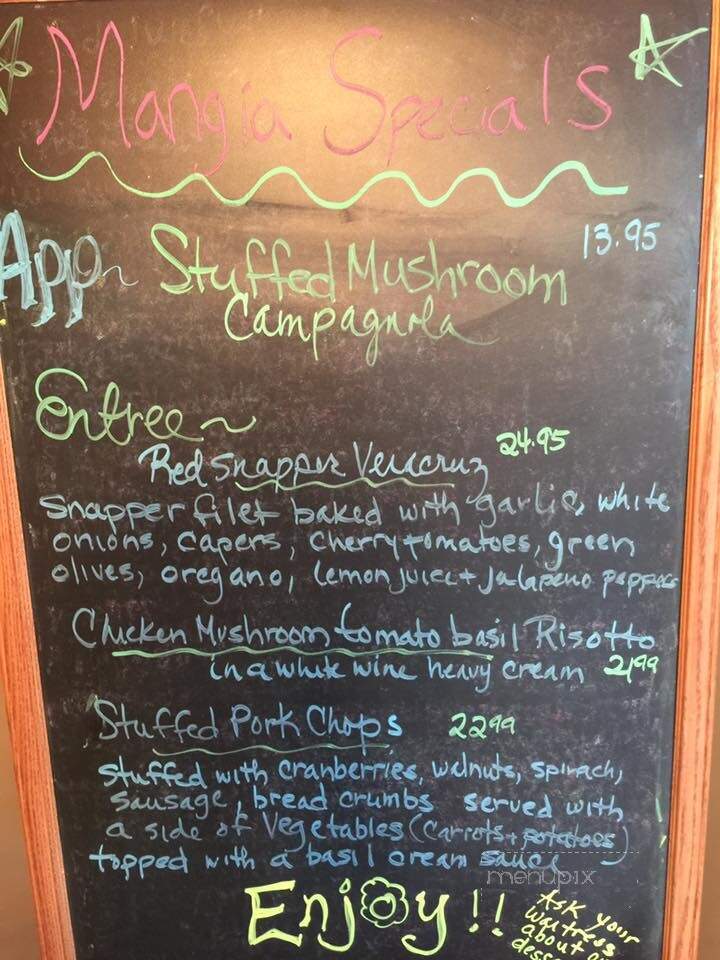 Mangia Specials
App~ Stuffed Mushroom 13.95
Campagnola
Entree~
Red Snapper Veracruz 24.95
Snapper filet baked with garlic, white
onions, capers, cherry tomatoes, green
olives, oregano, lemon juice + jalapeno peppers
Chicken Mushroom tomato basil Risotto
in a white wine heavy cream 21.99
Stuffed Pork Chops 22.99
Stuffed with cranberries, walnuts, spinach,
sausage, bread crumbs served with
a side of vegetables (carrots + potatoes)
topped with a basil cream sauce
menupix
Enjoy!!
Ask your
waitress
about